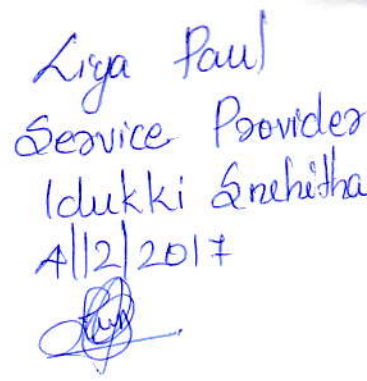 Liya Paul
Service Provider
Idukki Snehitha
4/12/2017